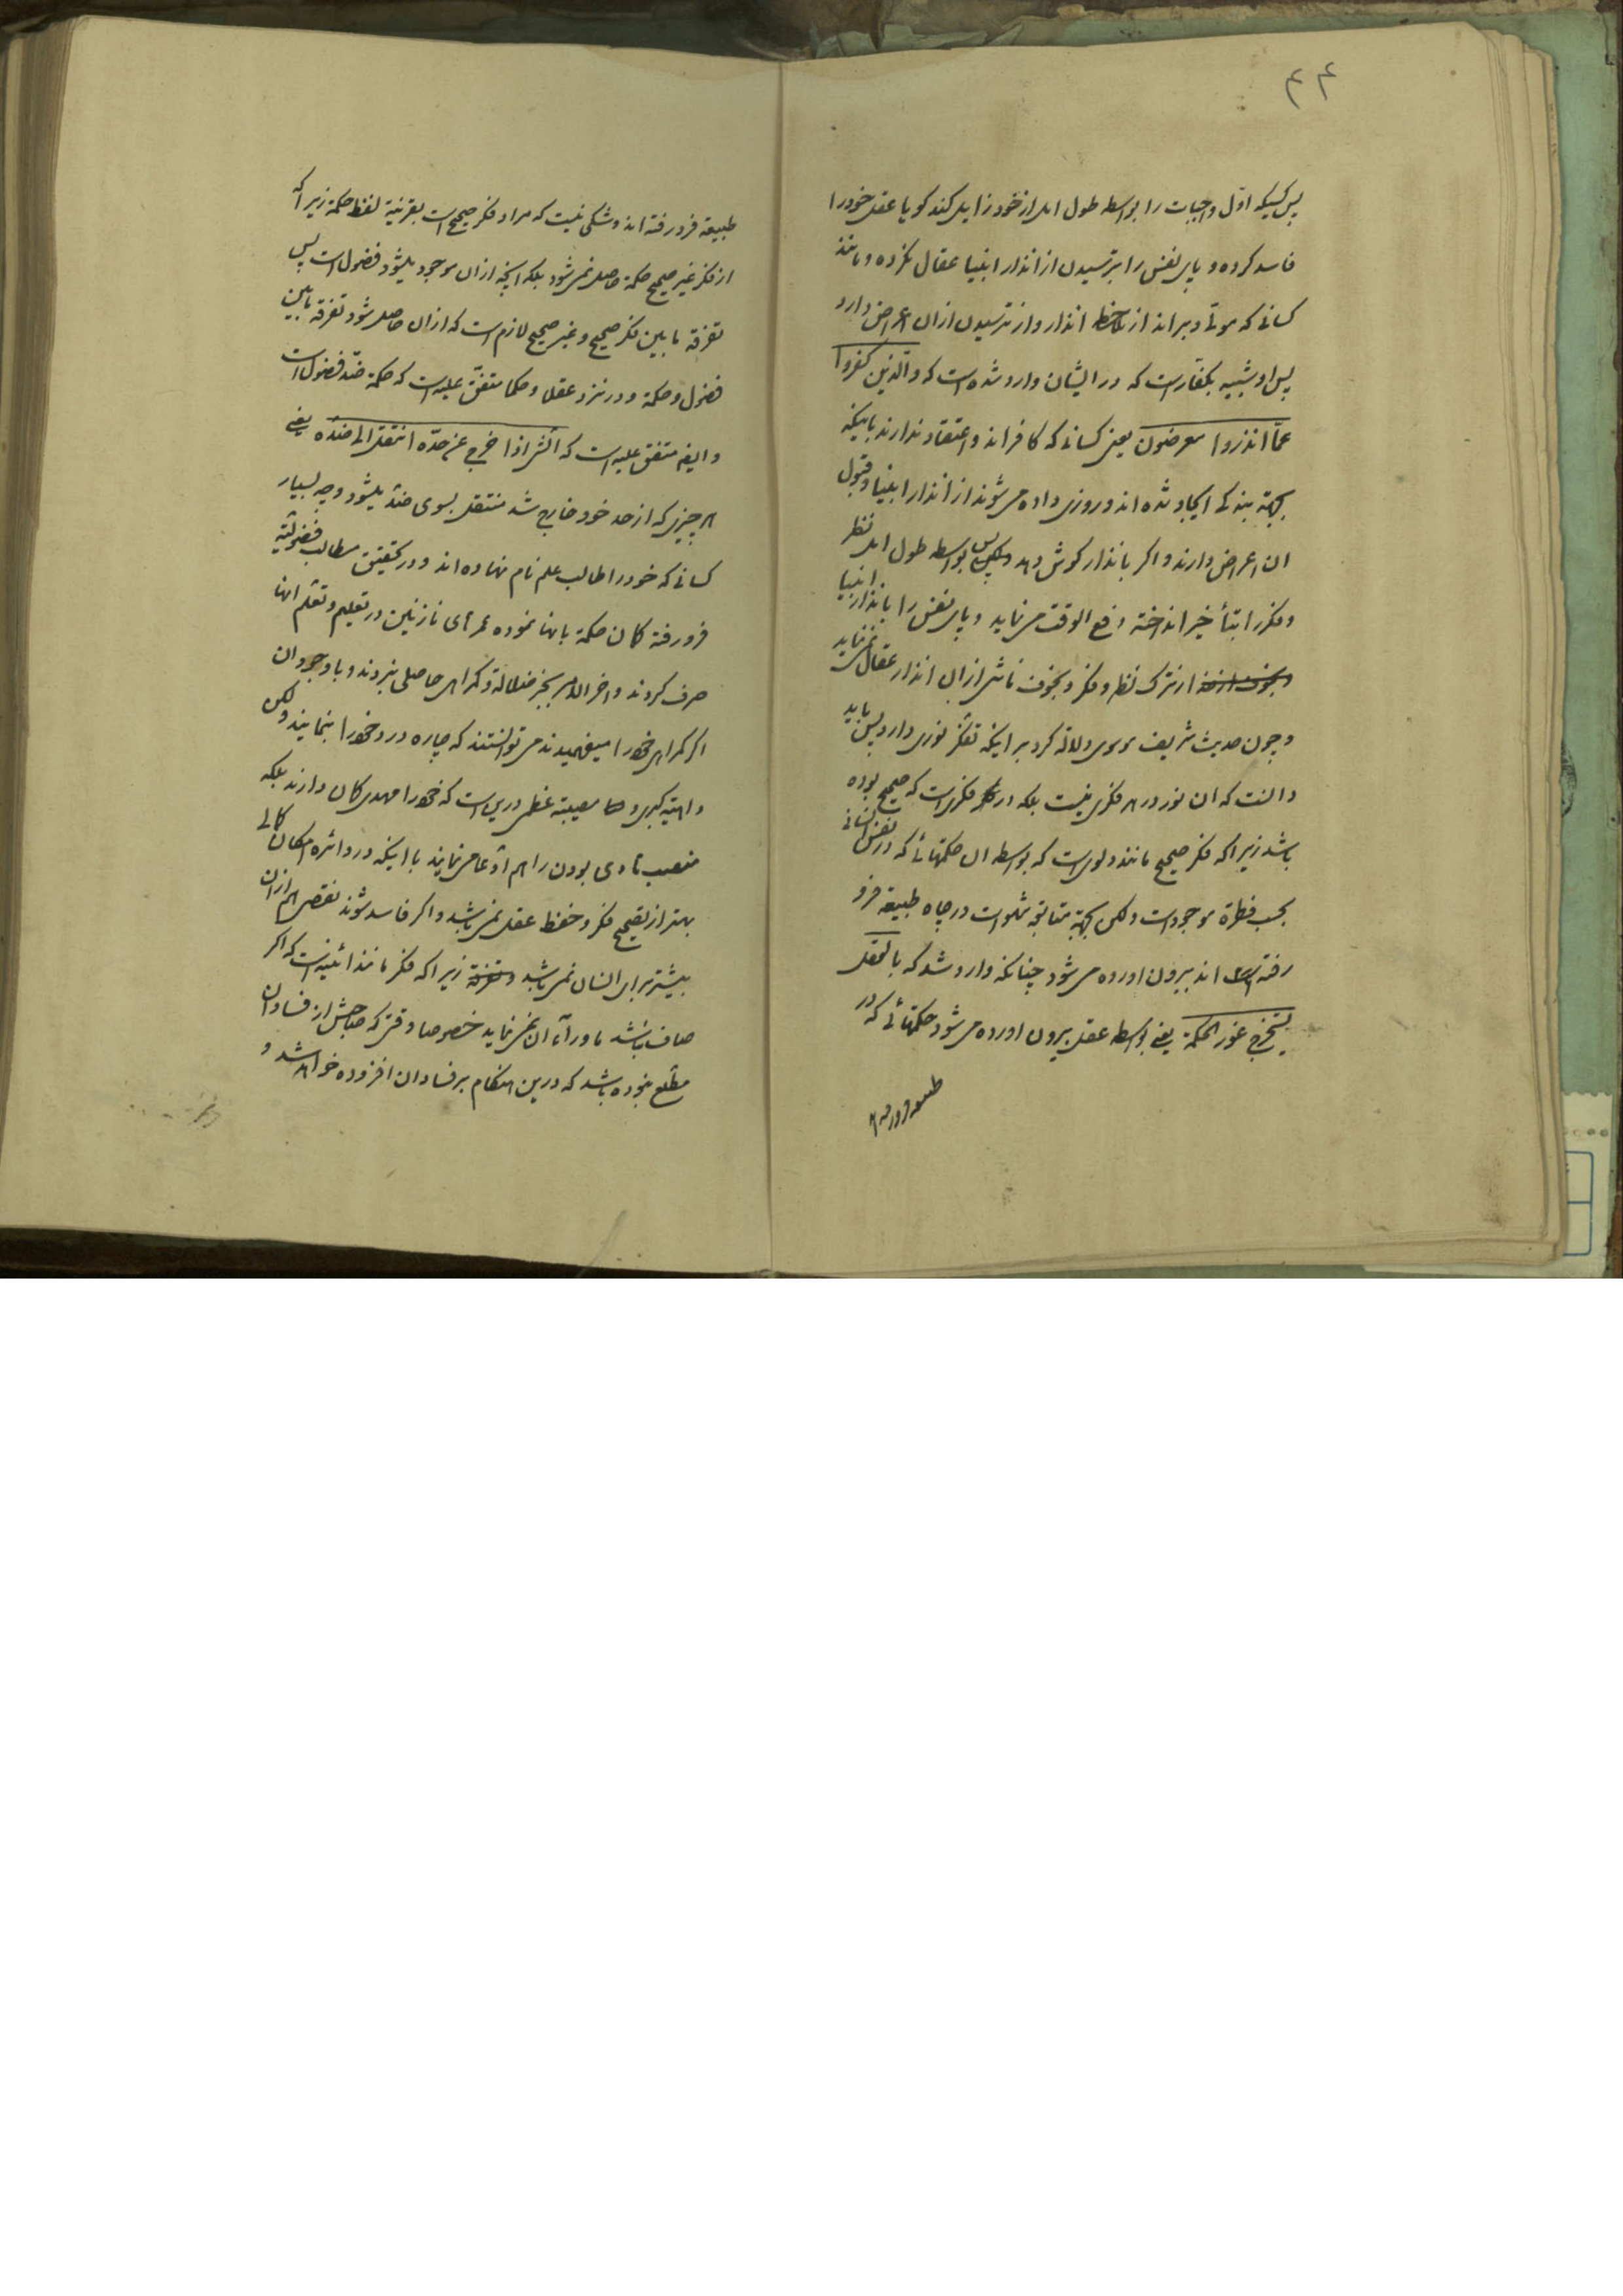 ۴۴
پس کسیکه اوّل واجبات را بواسطه طول امل از خود زایل کند کویا عقل خود را
فاسد کرده و پای نفس را بترسیدن از انذار انبیا عقال نکرده و مانند
کسانی که موتی و براند از انذار و از ترسیدن ازان اعراض دارد
پس او شبیه بکفار است که در ایشان وارد شده است که والّذین کفروا
عمّا انذروا معرضون یعنی کسانی که کافراند و اعتقاد ندارند باینکه
بجهة بندکی ایجاد شده اند و روزی داده می شوند از انذار انبیا و قبول
ان اعراض دارند و اکر بانذار کوش دهد پس بواسطه طول امل نظر
و فکر را بتأخیر انداخته دفع الوقت می نماید و پای نفس را بانذار انبیا
از ترک نظر و فکر و بخوف ناشی ازان انذار عقال نمی نماید
و چون حدیث شریف موسوی دلالة کرد بر اینکه تفکر نوری دارد پس باید
دانست که ان نور در هر فکری نیست بلکه در فکری است که صحیح بوده
باشد زیرا که فکر صحیح مانند دلوی است که بواسطه ان حکمتهائی که در نفس انسانی
بحسب فطرة موجود است ولکن بجهة متابعة شهوات در چاه طبیعة فرو
رفته اند بیرون اورده می شود چنانکه وارد شد که بالعقل
یستخرج غور الحکمة یعنی بواسطه عقل بیرون اورده می شود حکمتهائی که در
طبیعة فرو رفته اند و شکی نیست که مراد فکر صحیح است بقرینة لفظ حکمة زیرا که
از فکر غیر صحیح حکمة حاصل نمی شود بلکه انچه ازان موجود میشود فضول است پس
تفرقة مابین فکر صحیح و غیر صحیح لازم است که ازان حاصل شود تفرقة مابین
فضول و حکمة و در نزد عقلا و حکما متفق علیه است که حکمة ضدّ فضول است
و ایضا متفق علیه است که الشئ اذا خرج عن حدّه انتقل الی ضدّه یعنی
هر چیزی که از حد خود خارج شد منتقل بسوی ضدّ میشود و چه بسیار
کسانی که خود را طالب علم نام نهاده اند و در تحقیق مطالب فضولیّه
فرو رفته کمان حکمة بانها نموده عمرهای نازنین در تعلیم و تعلم انها
صرف کردند و اخر الامر بجز ضلالة و کمراهی حاصلی نبردند و با وجود ان
اکر کمراهی خود را میفهمیدند می توانستند که چاره درد خود را بنمایند ولکن
داهیة کبری و مصیبة عظمی درین است که خود را مهدی کمان دارند بلکه
منصب هادی بودن را هم ادّعا می نمایند با اینکه در دائره امکان کمالی
بهتر از تصحیح فکر و حفظ عقل نمی باشد و اکر فاسد شوند نقصی هم ازان
بیشتر برای انسان نمی باشد زیرا که فکر مانند ائینه است که اکر
صاف نباشد ماوراء ان نمی نماید خصوصا وقتی که صاحبش از فساد ان
مطّلع نبوده باشد که درین هنکام بر فساد ان افزوده خواهد شد و